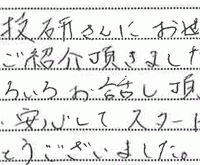 技研さんにお世
ご紹介頂きました
ろいろお話し頂
安心してスタート
とうございました。